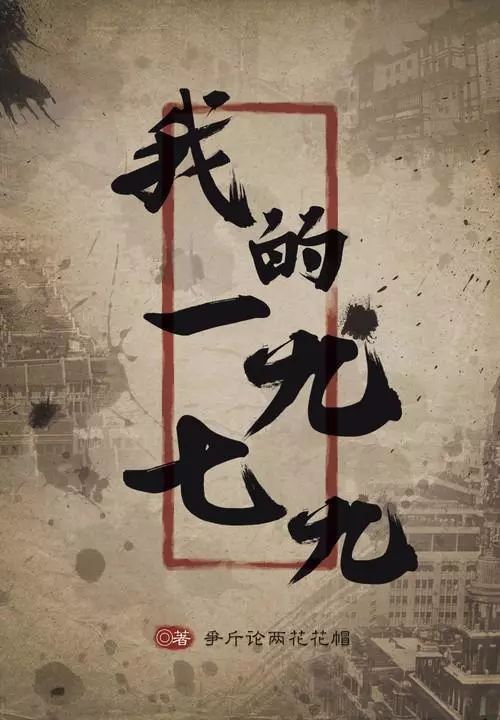 我的一九七九
◎著 爭斤论两花花帽